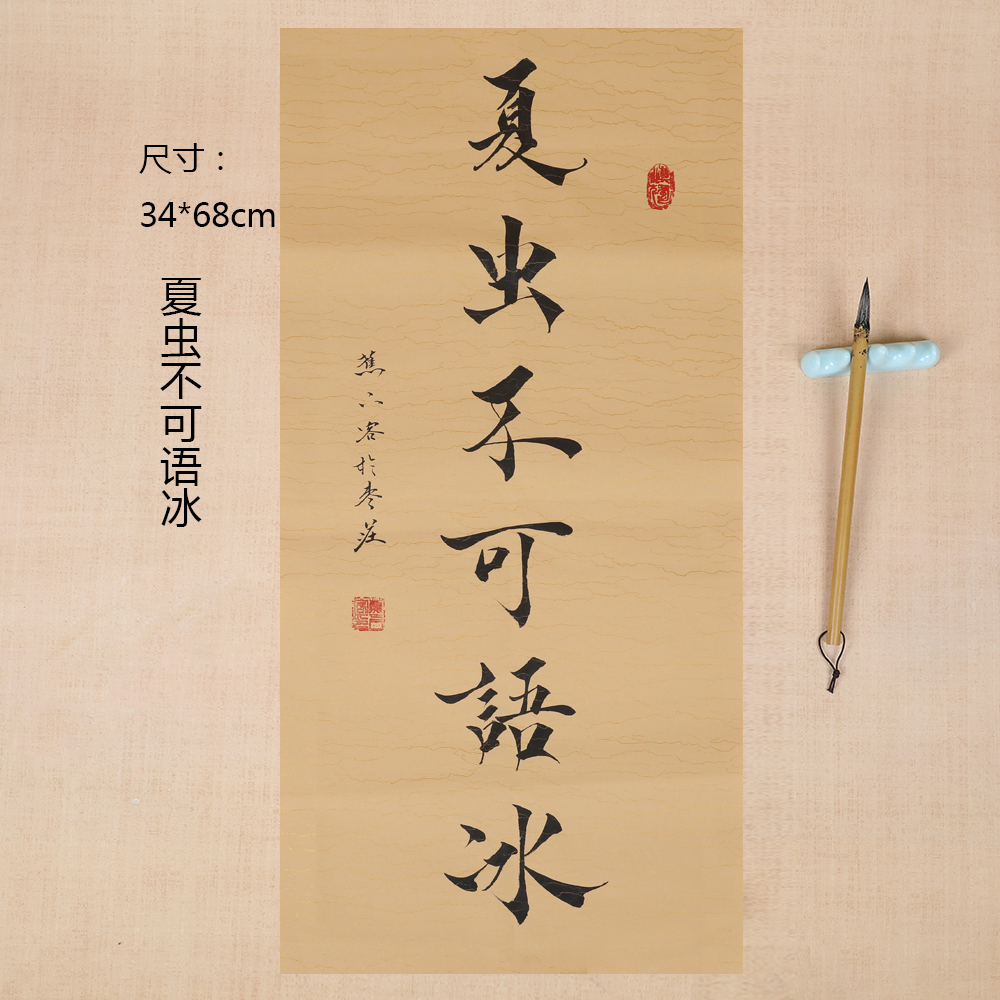 尺寸：
34*68cm
夏虫不可语冰
夏虫不可語冰
蕉下客於枣莊